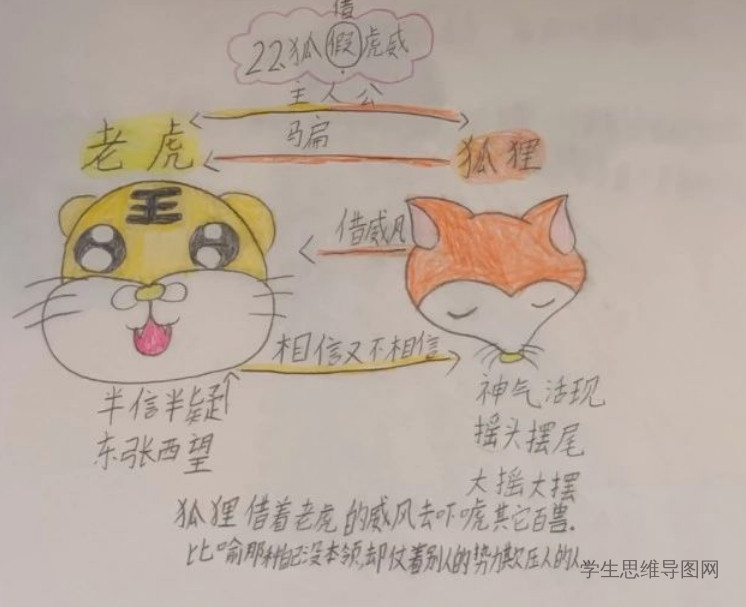 借
22.狐假虎威
主人公
老虎
骗
狐狸
借威风
相信又不相信
半信半疑
东张西望
神气活现
摇头摆尾
大摇大摆
狐狸借着老虎的威风去吓唬其它百兽.
比喻那种自己没本领,却仗着别人的势力欺压人的人
学生思维导图网